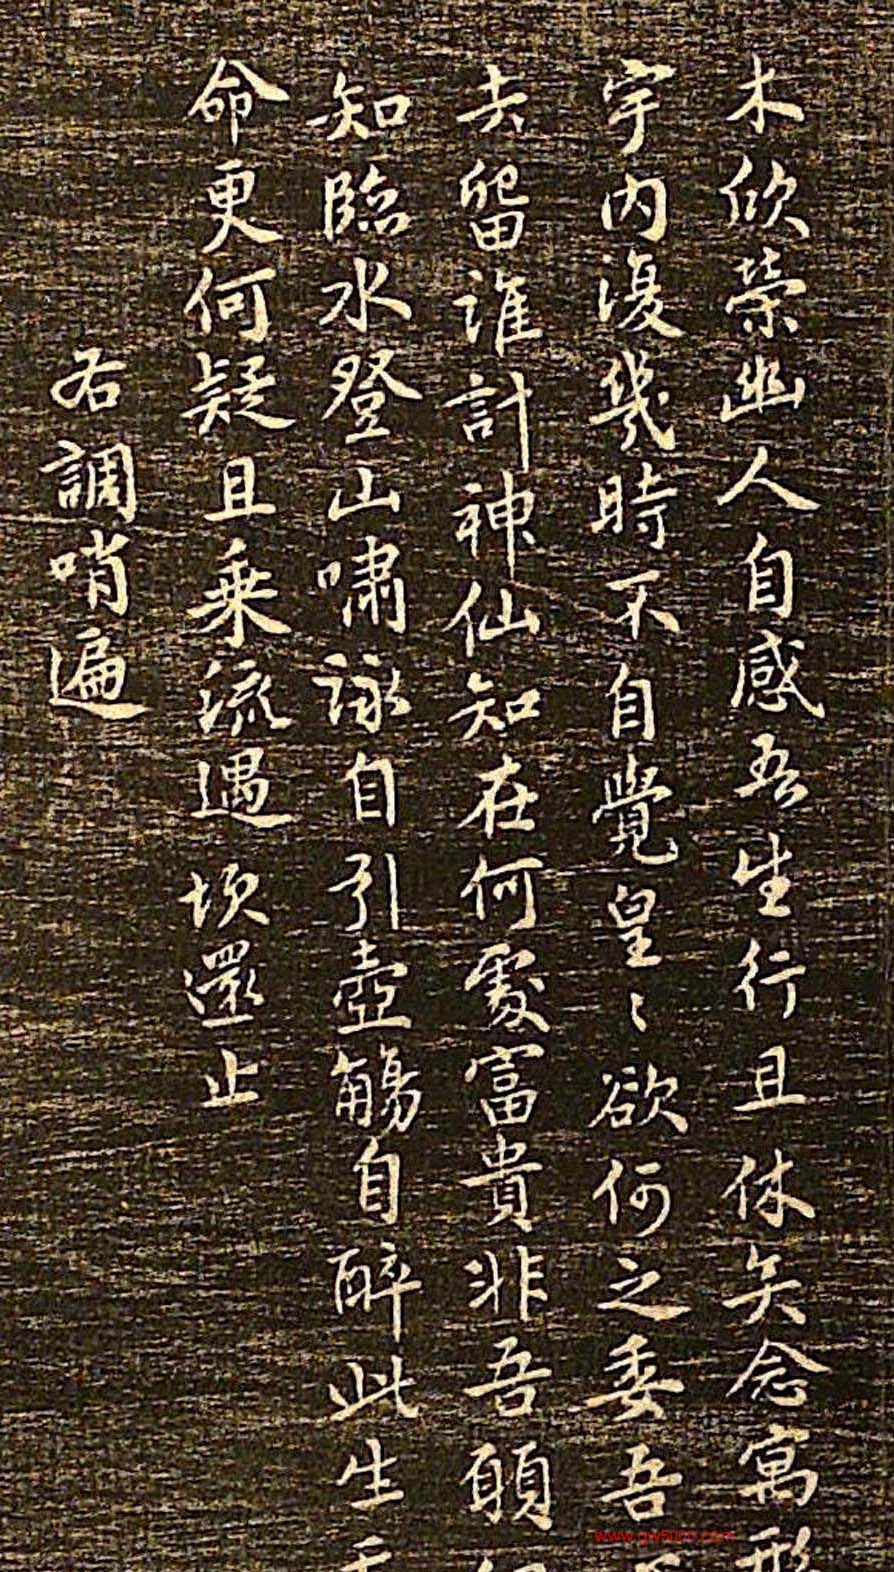 木欣榮幽人自感吾生行且休矣念寓形
宇內復幾時不自覺皇〻欲何之委吾
去留誰計神仙知在何處富貴非吾願
知臨水登山嘯詠自引壺觴自醉此生
命更何疑且乘流遇坎還止
右調哨遍